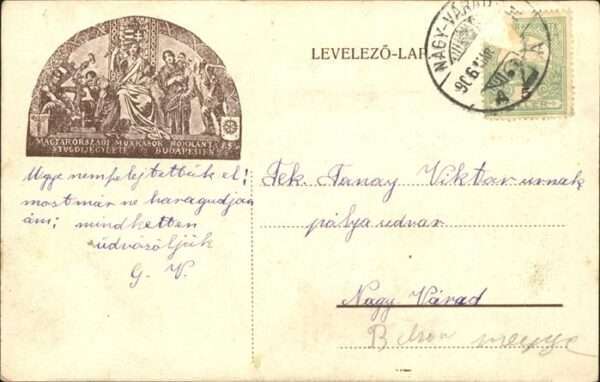 LEVELEZŐ-LAP
NAGY-VÁRAD
906
MAGYARORSZÁGI MUNKÁSOK ROKKANT ÉS
NYUGDIJEGYLETE BUDAPESTEN
Ugye nem felejtettük el!
most már ne haragudjon
ám; mindketten
üdvözöljük
G. V.
Tek. Tanay Viktor urnak
pálya udvar
Nagy Várad
megye